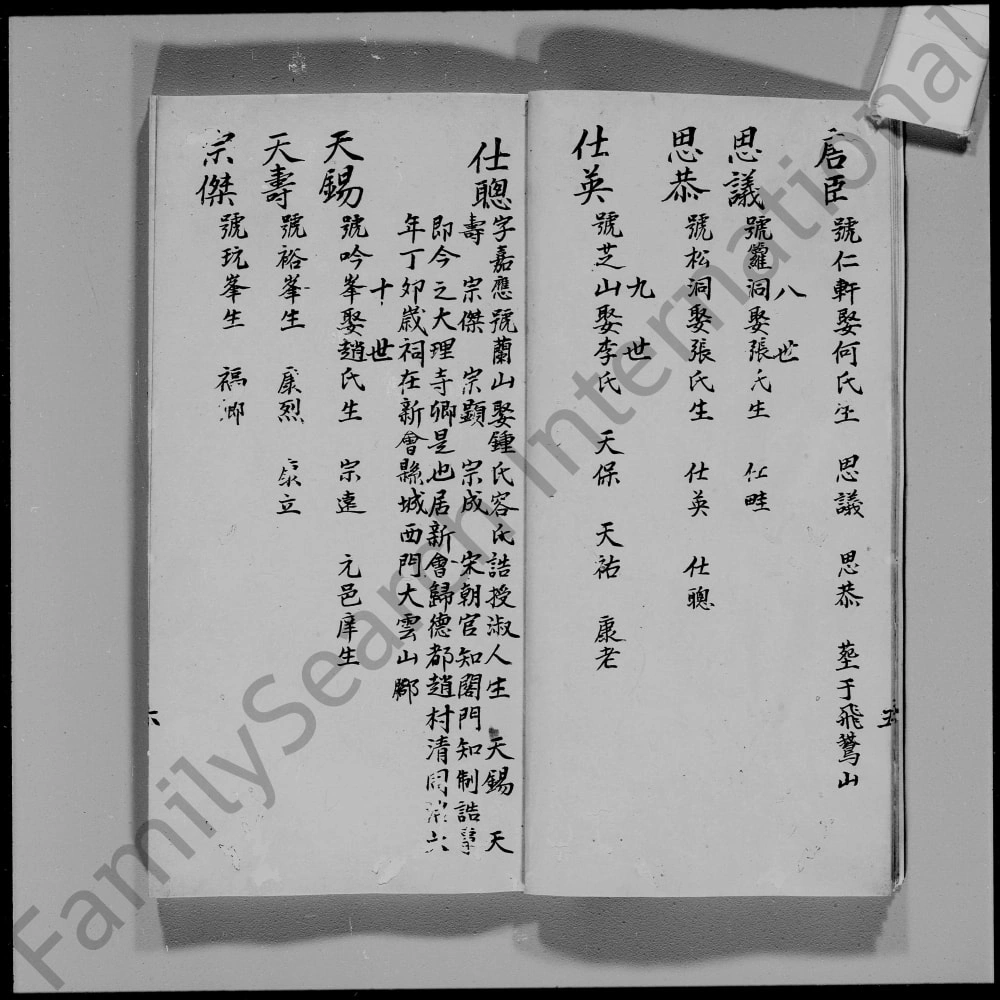 臣 號仁軒娶何氏生 思議 思恭 塟于飛鵞山
八世
思議 號蘿洞娶張氏生 仕畦
思恭 號松洞娶張氏生 仕英 仕聰
九世
仕英 號芝山娶李氏 天保 天祐 康老
五
仕聰 字嘉應號蘭山娶鍾氏容氏誥授淑人生 天錫 天
壽 宗傑 宗顯 宗成 宋朝官知閣門知制誥事
即今之大理寺卿是也居新會歸德都趙村清同治六
年丁卯歲祠在新會縣城西門大雲山腳
十世
天錫 號吟峯娶趙氏生 宗遠 元邑庠生
天壽 號裕峯生 康烈 康立
宗傑 號玩峯生 福卿
六
FamilySearch International